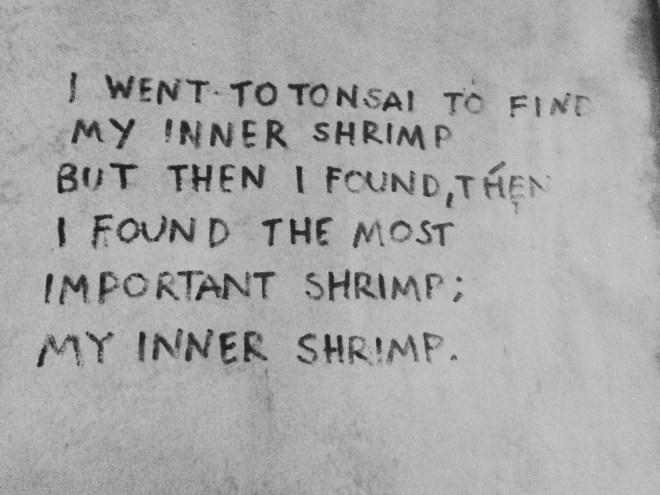 I WENT TO TONSAI TO FIND
MY INNER SHRIMP
BUT THEN I FOUND, THEN
I FOUND THE MOST
IMPORTANT SHRIMP;
MY INNER SHRIMP.